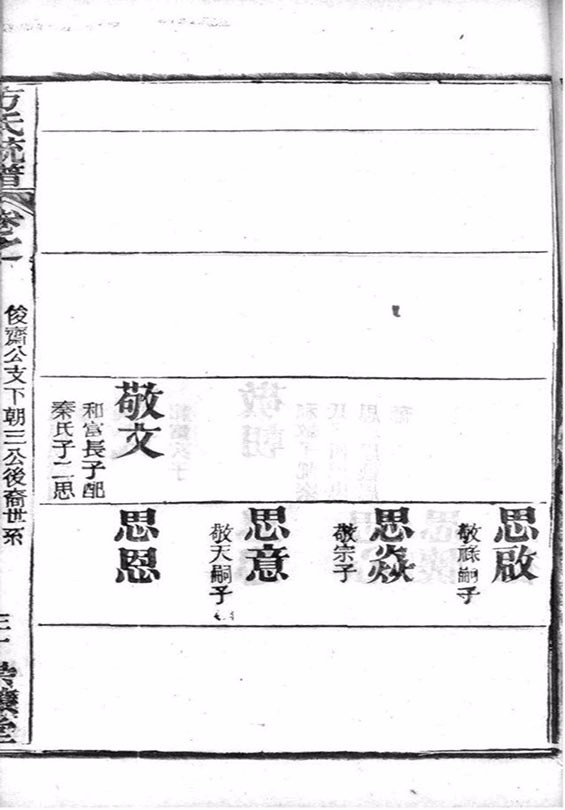 敬文
和富長子配
秦氏子二思
思啟
敬祿嗣子
思焱
敬宗子
思意
敬天嗣子
思恩
方氏統譜
卷之一
俊齋公支下朝三公後裔世系